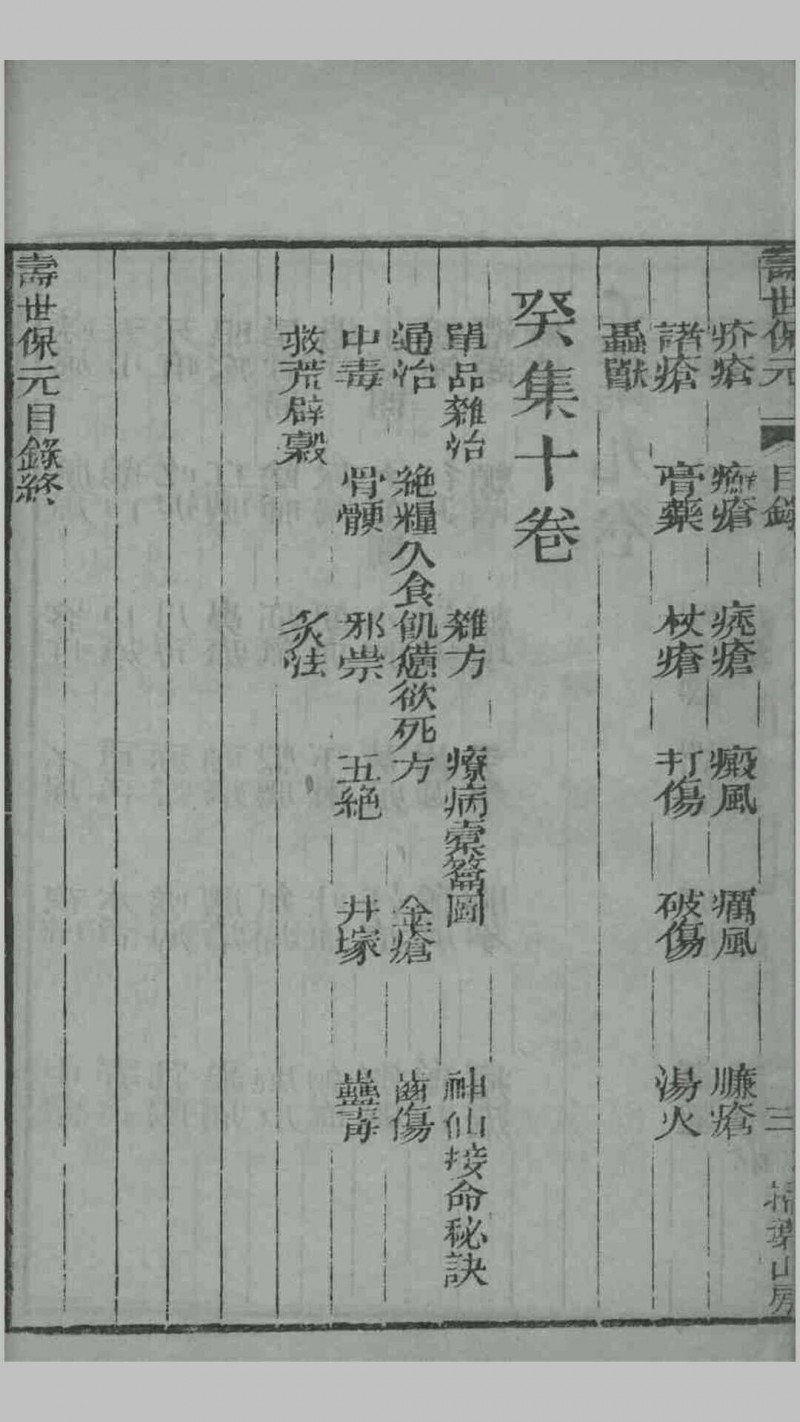 壽世保元 目錄 三 掃葉山房
疥瘡 癬瘡 疣瘡 癜風 癘風 臁瘡
諸瘡 膏藥 杖瘡 打傷 破傷 湯火
蟲獸
癸集十卷
單品雜治 雜方 療病槖籥圖 神仙接命秘訣
通治 絶糧久食飢憊欲死方 金瘡 齒傷
中毒 骨骾 邪祟 五絶 井塚 蠱毒
救荒辟穀 灸法
壽世保元目錄終